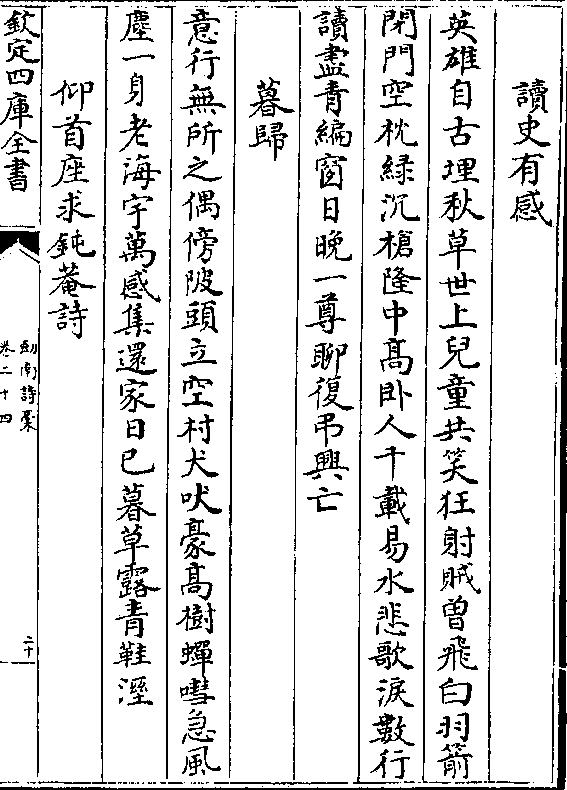 讀史有感
英雄自古埋秋草世上兒童共笑狂射賊曾飛白羽箭
閉門空枕綠沉槍隆中高卧人千載易水悲歌淚數行
讀盡青編窗日晚一尊聊復弔興亡
暮歸
意行無所之偶傍陂頭立空村犬吠豪高樹蟬嘒急風
塵一身老海宇萬感集還家日已暮草露青鞋溼
仰首座求鈍菴詩
欽定四庫全書
劍南詩稾
卷二十四
二十